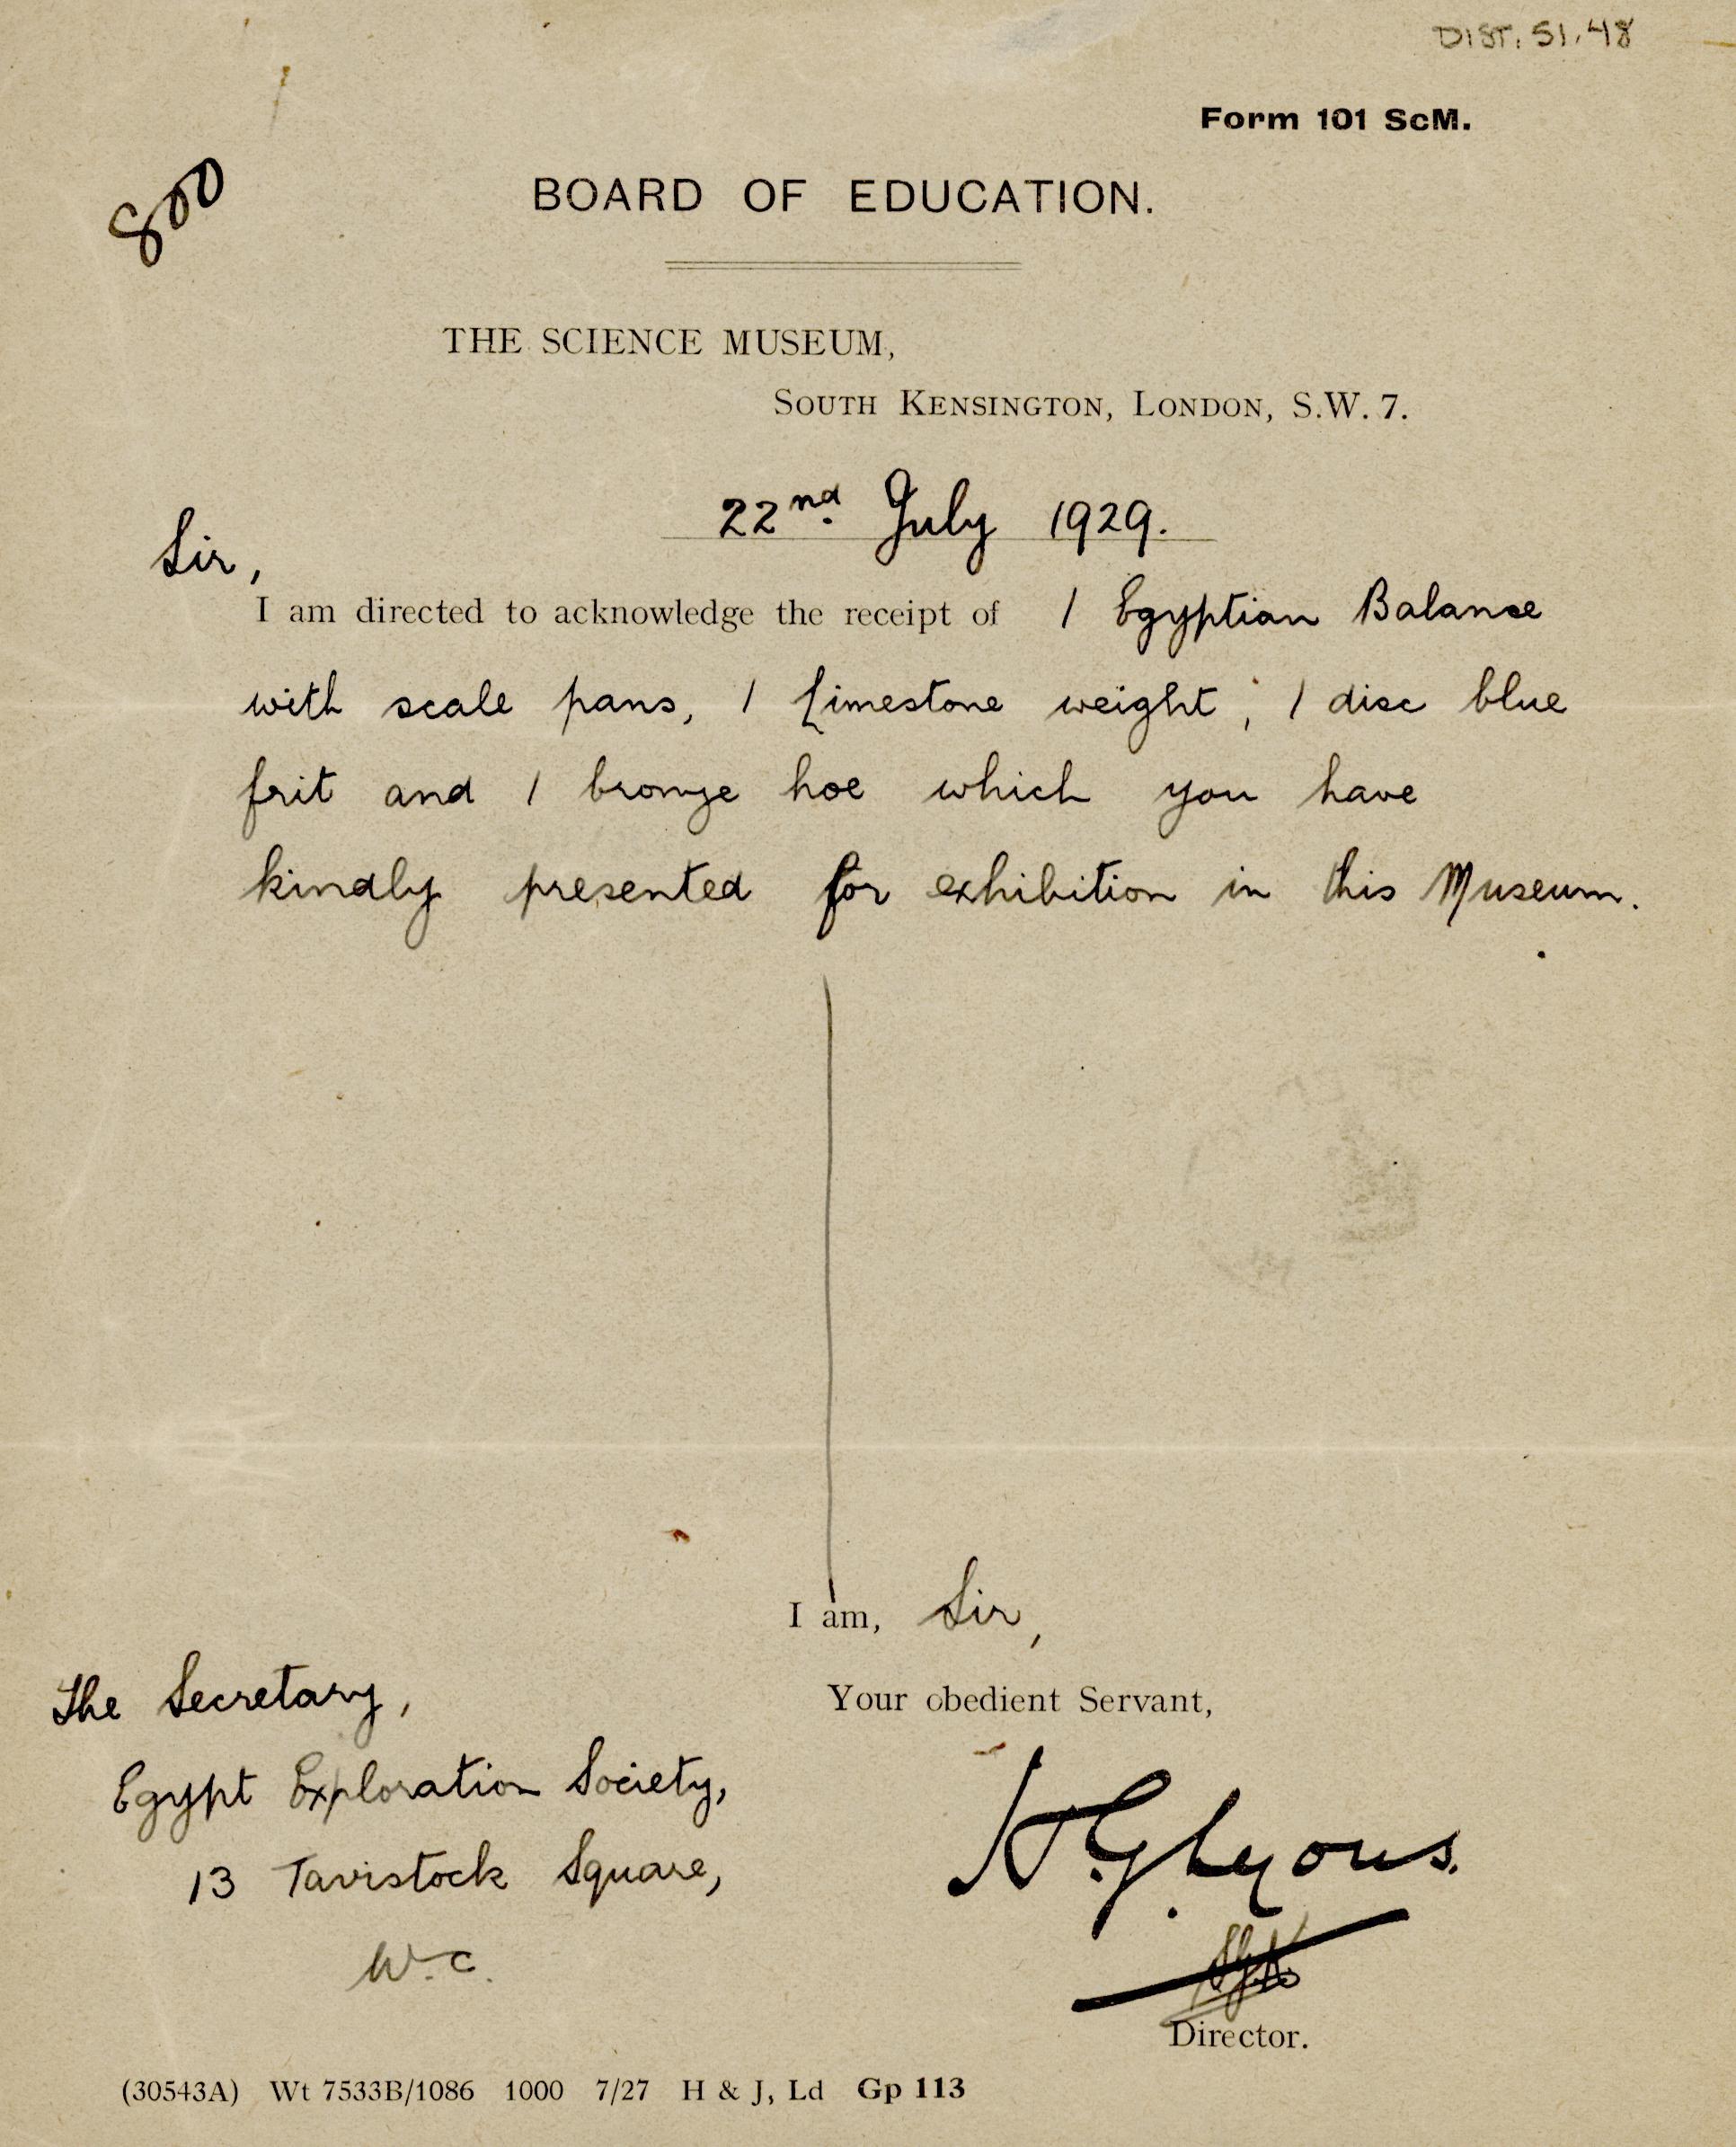 DIST. 51.48
Form 101 ScM.
800
BOARD OF EDUCATION.
THE SCIENCE MUSEUM,
SOUTH KENSINGTON, LONDON, S.W. 7.
22nd July 1929.
Sir,
I am directed to acknowledge the receipt of 1 Egyptian Balance
with scale pans, 1 Limestone weight, 1 disc blue
frit and 1 bronze hoe which you have
kindly presented for exhibition in this Museum.
I am, Sir,
Your obedient Servant,
The Secretary,
Egypt Exploration Society,
13 Tavistock Square,
W.C.
H.G. Lyons.
Director.
(30543A) Wt 7533B/1086 1000 7/27 H & J, Ld Gp 113